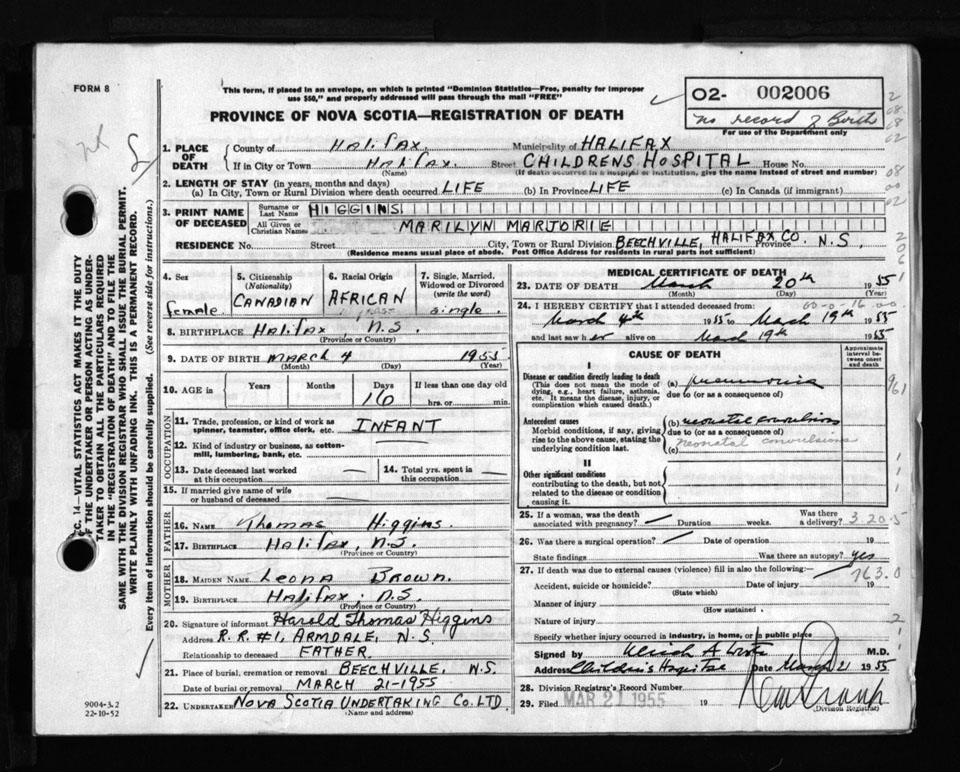 FORM 8
This form, if placed in an envelope, on which is printed "Dominion Statistics—Free, penalty for improper
use $50," and properly addressed will pass through the mail "FREE"
PROVINCE OF NOVA SCOTIA—REGISTRATION OF DEATH
O2- 002006
no record of Birth
For use of the Department only
1. PLACE OF DEATH
County of Halifax. Municipality of HALIFAX
If in City or Town Halifax. Street CHILDRENS HOSPITAL House No.
(Name) (If death occurred in a hospital or institution, give the name instead of street and number)
2. LENGTH OF STAY (in years, months and days)
(a) In City, Town or Rural Division where death occurred LIFE (b) In Province LIFE (c) In Canada (if immigrant)
3. PRINT NAME OF DECEASED
Surname or Last Name HIGGINS
All Given or Christian Names MARILYN MARJORIE
RESIDENCE No. Street City, Town or Rural Division BEECHVILLE, HALIFAX CO. Province N.S.
(Residence means usual place of abode. Post Office Address for residents in rural parts not sufficient)
4. Sex
female
5. Citizenship (Nationality)
CANADIAN
6. Racial Origin
AFRICAN
7. Single, Married, Widowed or Divorced (write the word)
single.
8. BIRTHPLACE Halifax, N.S.
(Province or Country)
9. DATE OF BIRTH MARCH 4 1955
(Month) (Day) (Year)
10. AGE in Years Months Days 16 If less than one day old
hrs. or min.
OCCUPATION
11. Trade, profession, or kind of work as
spinner, teamster, office clerk, etc. INFANT
12. Kind of industry or business, as cotton-
mill, lumbering, bank, etc.
13. Date deceased last worked
at this occupation —
14. Total yrs. spent in
this occupation —
15. If married give name of wife
or husband of deceased —
FATHER
16. NAME Thomas Higgins.
17. BIRTHPLACE Halifax, N.S.
(Province or Country)
MOTHER
18. MAIDEN NAME Leona Brown.
19. BIRTHPLACE Halifax, N.S.
(Province or Country)
20. Signature of informant Harold Thomas Higgins
Address R.R #1, ARMDALE, N.S.
Relationship to deceased FATHER.
21. Place of burial, cremation or removal BEECHVILLE, N.S.
Date of burial or removal MARCH 21-1955
22. UNDERTAKER NOVA SCOTIA UNDERTAKING CO. LTD
(Name and address)
MEDICAL CERTIFICATE OF DEATH
23. DATE OF DEATH March 20th 1955
(Month) (Day) (Year)
24. I HEREBY CERTIFY that I attended deceased from
00-0-16
March 4th 1955 to March 19th 1955
and last saw her alive on March 19th 1955
CAUSE OF DEATH
Approximate interval between onset and death
I
Disease or condition directly leading to death
(This does not mean the mode of dying, e.g., heart failure, asthenia, etc. It means the disease, injury, or complication which caused death.)
(a) pneumonia
due to (or as a consequence of)
Antecedent causes
Morbid conditions, if any, giving rise to the above cause, stating the underlying condition last.
(b) neonatal convulsions
due to (or as a consequence of)
Neonatal convulsions
(c)
II
Other significant conditions
contributing to the death, but not related to the disease or condition causing it.
25. If a woman, was the death
associated with pregnancy? — Duration weeks. Was there a delivery?
3 20.5
26. Was there a surgical operation? — Date of operation 19
State findings Was there an autopsy? yes
27. If death was due to external causes (violence) fill in also the following:—
763.0
Accident, suicide or homicide? Date of injury 19
(State which)
Manner of injury
(How sustained)
Nature of injury
Specify whether injury occurred in industry, in home, or in public place
Signed by M.D.
Address Children's Hospital Date March 21 1955
28. Division Registrar's Record Number
29. Filed MAR 21 1955 19
(Division Registrar)
SEC. 14—VITAL STATISTICS ACT MAKES IT THE DUTY
OF THE UNDERTAKER OR PERSON ACTING AS UNDER-
TAKER TO OBTAIN ALL THE PARTICULARS REQUIRED
IN THE "REGISTRATION OF DEATH" AND TO FILE THE
SAME WITH THE DIVISION REGISTRAR WHO SHALL ISSUE THE BURIAL PERMIT.
WRITE PLAINLY WITH UNFADING INK. THIS IS A PERMANENT RECORD.
Every item of information should be carefully supplied. (See reverse side for instructions.)
9004-3.2
22-10-52